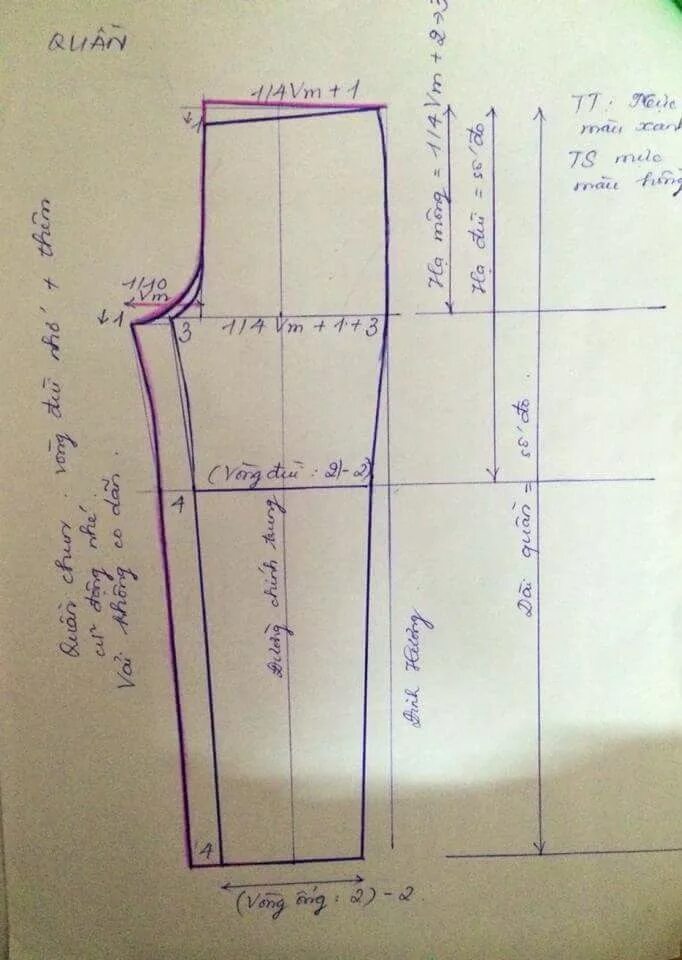 QUẦN
1/4Vm + 1
↓1
Hạ mông = 1/4Vm + 2→3
Hạ đùi = số đo
TT: Mực
màu xanh
TS mực
màu hồng
1/10
Vm
↓1
3
1/4 Vm + 1 + 3
(Vòng đùi : 2) - 2
4
Quần chun vòng đùi nhớ + thêm
cử động nhé
Vải không co dãn.
Đường chính trung
Đinh Hương
Dài quần = số đo.
4
(Vòng ống : 2) - 2